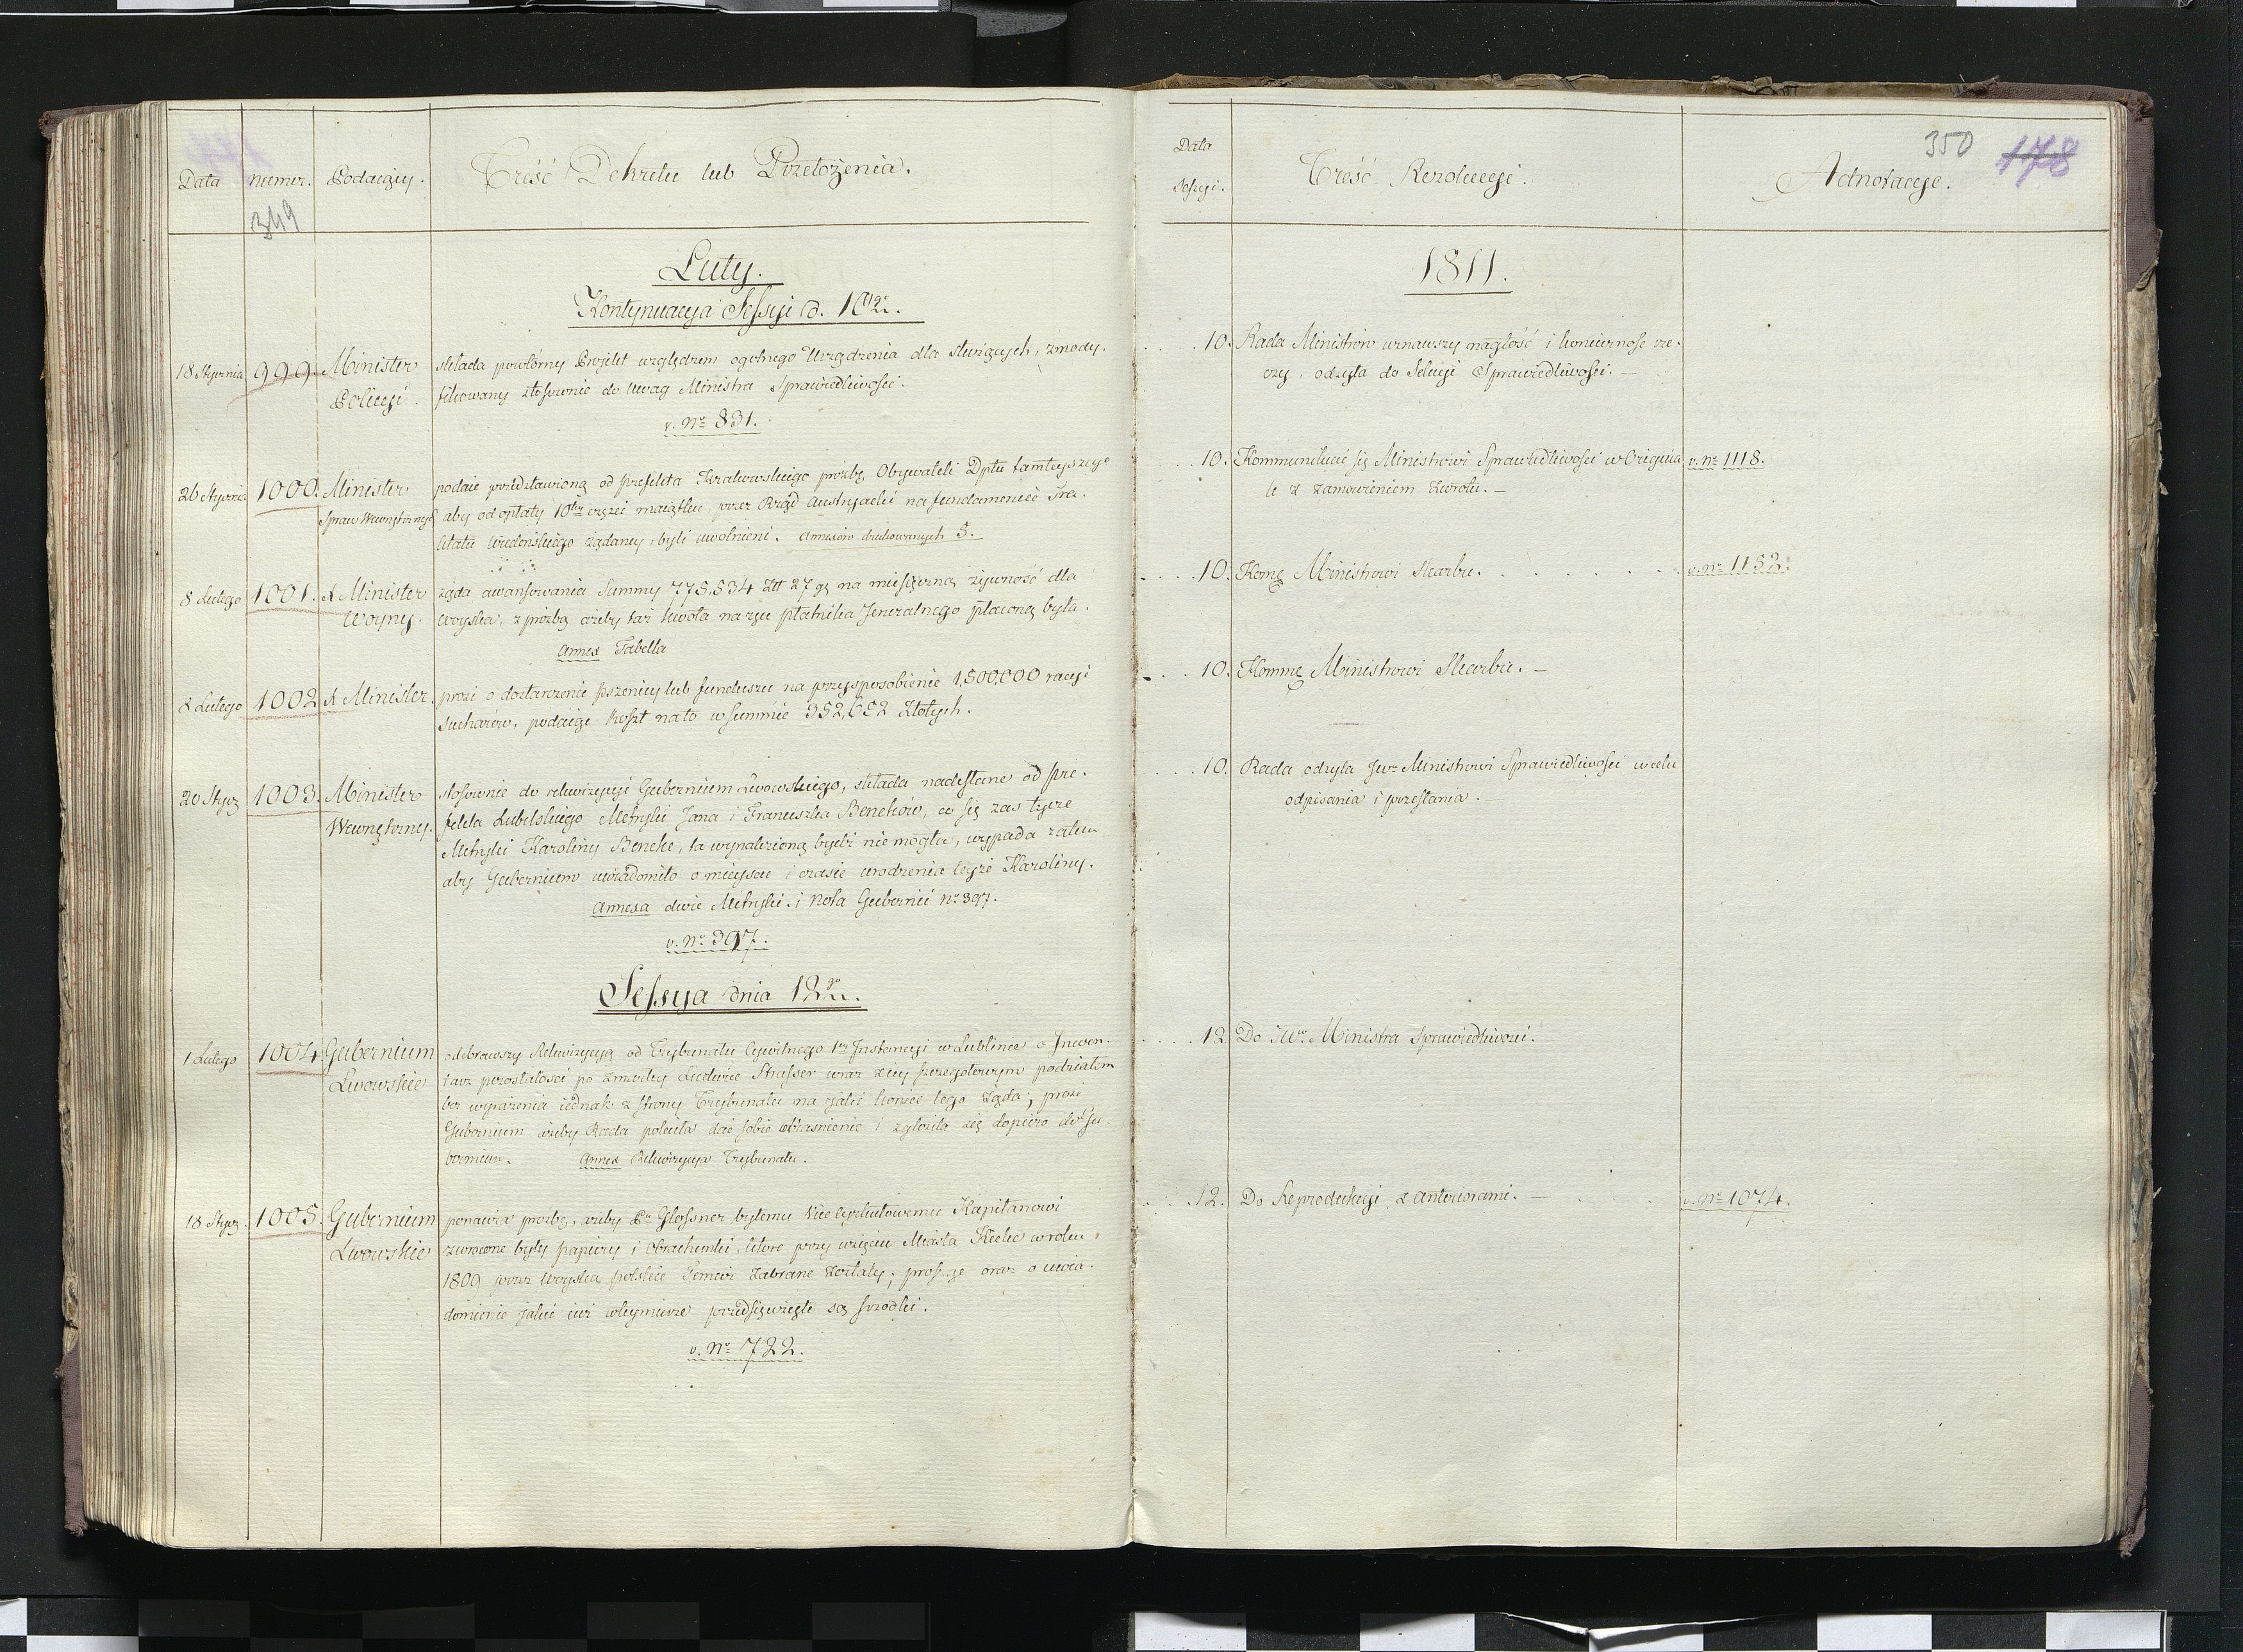 Data
Numer.
Podaiący.
Treść Dekretu lub Przełożenia.
349
Luty.
Kontynuacya Sessyi d. 10go
18 Stycznia
999.
Minister
Policyi.
składa powtórny Projekt względem ogolnego Urządzenia dla służących, zmody-
fikowany stosownie do uwag Ministra Sprawiedliwości.
v. No 831.
26 Stycznia
1000.
Minister
Spraw Wewnętrznych
podaie przedstawioną od prefekta Krakowskiego prożbę Obywateli Dptu tamteyszego
aby od opłaty 10tey części maiątku przez Rząd Austryacki na fundamencie Tra-
ktatu Wiedeńskiego żądaney, byli uwolnieni. Annexów drukowanych 5.
8 Lutego
1001.
X Minister
Woyny.
żąda awansowania Summy 775,534 Złł 27 gr na miesięczną żywność dla
woyska, z prożbą ażeby taż kwota na ręce płatnika Jeneralnego płaconą była.
Annex Tabella
8 Lutego
1002
X Minister.
prosi o dostarczenie pszenicy lub funduszu na przysposobienie 1,500,000 racyi
sucharów, podaiąc koszt na to w summie 352,652 Złotych.
20 Stycz
1003.
Minister
Wewnętrzny.
stosownie do rekwizycyi Gubernium Lwowskiego, składa nadesłane od pre-
fekta Lubelskiego Metryki Jana i Franciszka Beneków, co się zas tycze
Metryki Karoliny Beneke, ta wynalezioną bydź nie mogła, wypada zatem
aby Gubernium uwiadomiło o mieyscu i czasie urodzenia teyże Karoliny.
Annexa dwie Metryki. i Nota Gubernii No 397.
v. No 397.
Sessya dnia 12go
1 Lutego
1004.
Gubernium
Lwowskie
odebrawszy Rekwizycyą od Trybunału Cywilnego 1ey Instancyi w Lublinie o Inwen-
tarz pozostałości po zmarłey Ludwice Strasser wraz z iey szczegółowym podziałem
bez wyrażenia iednak z strony Trybunału na iakie koniec tego żąda; prosi
Gubernium ażeby Rada poleciła dać sobie obiasnienie i zgłosiła się dopiero do Gu-
bernium. Annex Rekwizycya Trybunału.
18 Stycz.
1005.
Gubernium
Lwowskie
ponawia prożbę, ażeby Pu Glossner byłemu Vice Cyrkułowemu Kapitanowi
zwrocone były papiery i Obrachunki, ktore przy wzięciu Miasta Kielce w roku
1809 przez woyska polskie Temuż zabrane zostały; prosząc oraz o uwia-
domienie jakie iuż w teymierze przedsięwzięte są srzodki.
v. No 722.
Data
Sessyi.
Treść Rezolucyi.
Adnotacye.
350
178
1811.
10.
Rada Ministrów uznawszy nagłość i konieczność rze-
czy odsyła do Sekcyi Sprawiedliwości.
10.
Kommunikuie się Ministrowi Sprawiedliwości w Origina-
le z zamowieniem zwrotu.
v. No 1118.
10.
Komę Ministrowi Skarbu.
v. No 1152.
10.
Kommę Ministrowi Skarbu.
10.
Rada odsyła Jwu Ministrowi Sprawiedliwości w celu
odpisania i przesłania.
12.
Do JWo Ministra Sprawiedliwości.
12.
Do Reprodukcyi z anteriorami.
v. No 1074.